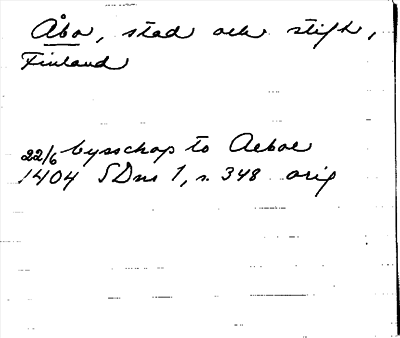 Åbo, stad och stift,
Finland
22/6 bysschop to Aeboe
1404 SDns 1, s. 348 orig